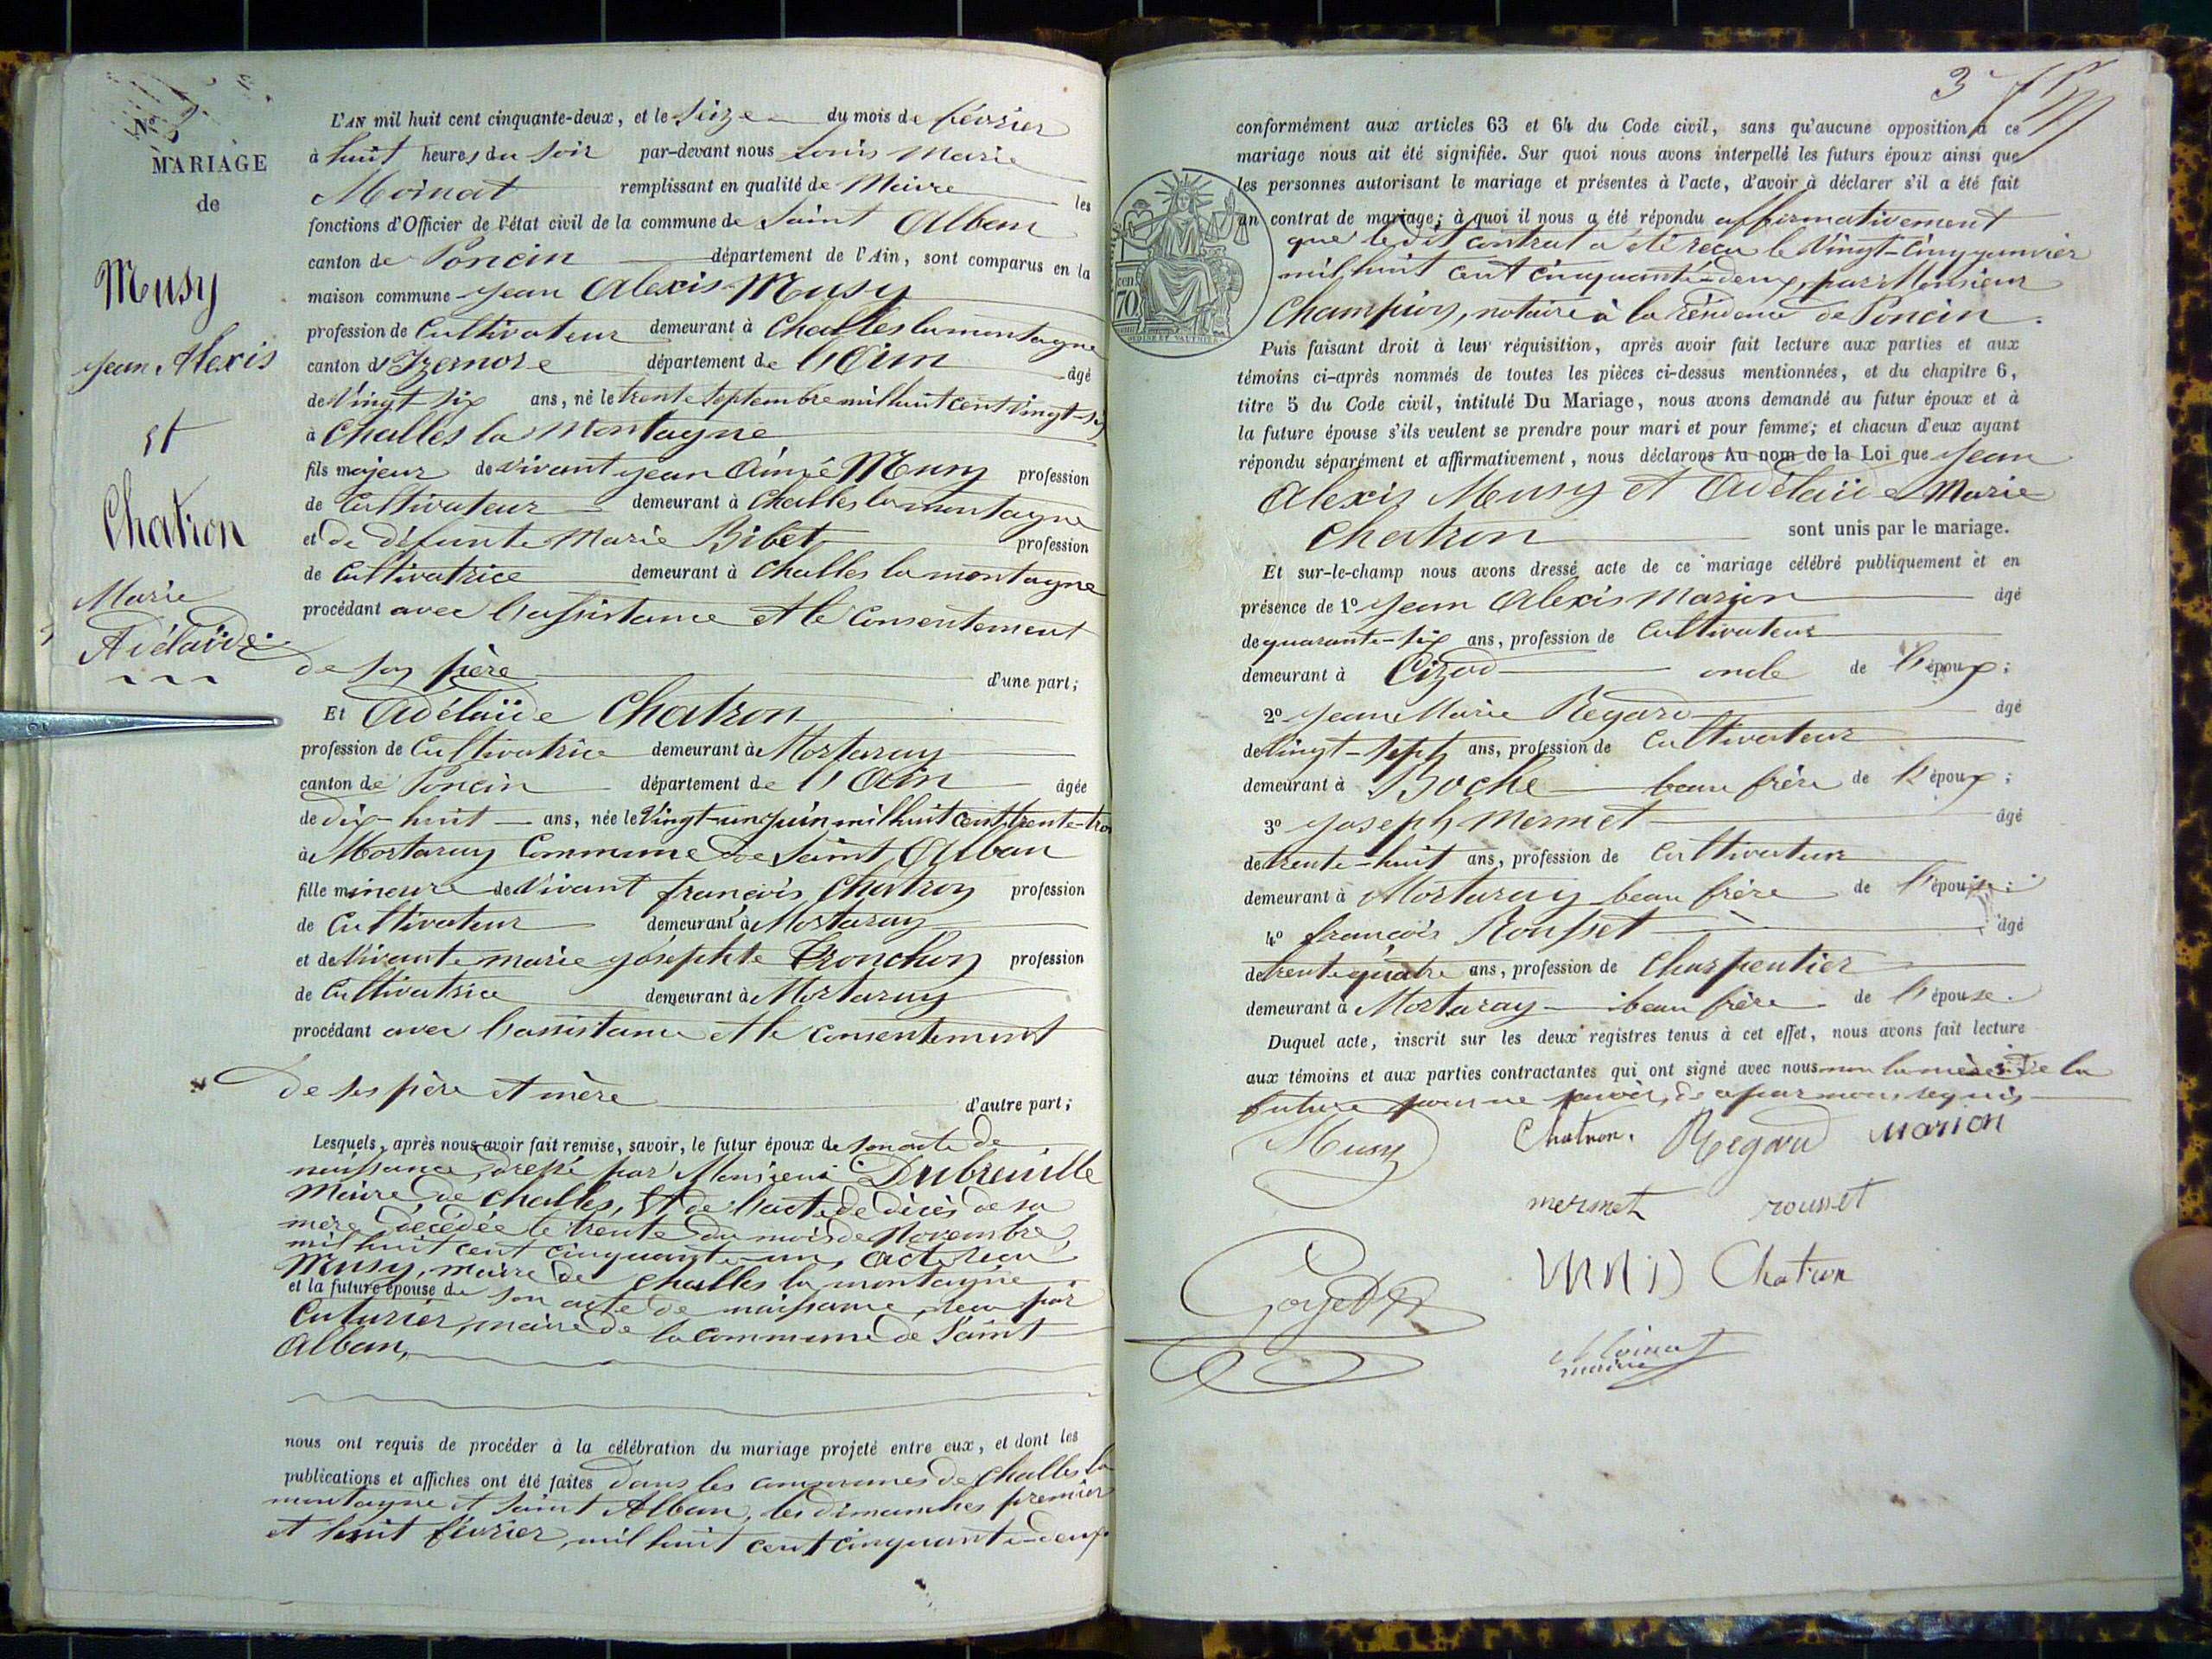 N° 2
MARIAGE
de
Musy
Jean Alexis
et
Chatron
Marie
Adélaïde
L'AN mil huit cent cinquante-deux, et le Seize du mois de février
à huit heures du soir par-devant nous Louis Marie
Moinat remplissant en qualité de Maire les
fonctions d'Officier de l'état civil de la commune de Saint Alban
canton de Poncin département de l'Ain, sont comparus en la
maison commune Jean Alexis Musy
profession de Cultivateur demeurant à Challes la montagne
canton d'Izernore département de l'Ain âgé
de Vingt six ans, né le trente Septembre mil huit cent Vingt-
à Challes la Montagne
fils majeur de vivant Jean Aimé Musy profession
de Cultivateur demeurant à Challes la montagne
et de défunte Marie Bibet profession
de Cultivatrice demeurant à Challes la montagne
procédant avec l'assistance et le Consentement
de son père d'une part;
Et Adélaïde Chatron
profession de Cultivatrice demeurant à Mortaray
canton de Poncin département de l'Ain âgée
de dix-huit ans, née le Vingt-un Juin mil huit cent trente-trois
à Mortaray Commune de Saint Alban
fille mineure de Vivant françois Chatron profession
de Cultivateur demeurant à Mortaray
et de Vivante marie Joséphte Tronchon profession
de Cultivatrice demeurant à Mortaray
procédant avec l'assistance et le consentement
de ses père et mère d'autre part;
Lesquels, après nous avoir fait remise, savoir, le futur époux de son acte de
naissance, dressé par Monsieur Dubreuille
Maire de Challes, Et de l'acte de décès de sa
mère décédée le trente du mois de Novembre
mil huit cent cinquante-un, acte reçu
Musy, maire de Challes la montagne
et la future épouse de son acte de naissance, reçu par
Cuturier, maire de la Commune de Saint
Alban,
nous ont requis de procéder à la célébration du mariage projeté entre eux, et dont les
publications et affiches ont été faites dans les communes de Challes la
montagne et Saint Alban, les dimanches premier
et huit février, mil huit cent cinquante-deux
3
conformément aux articles 63 et 64 du Code civil, sans qu'aucune opposition à ce
mariage nous ait été signifiée. Sur quoi nous avons interpellé les futurs époux ainsi que
les personnes autorisant le mariage et présentes à l'acte, d'avoir à déclarer s'il a été fait
un contrat de mariage; à quoi il nous a été répondu affirmativement
que le dit contrat a été reçu le Vingt-Cinq janvier
mil huit cent cinquante-deux, par Monsieur
Champion, notaire à la résidence de Poncin.
Puis faisant droit à leur réquisition, après avoir fait lecture aux parties et aux
témoins ci-après nommés de toutes les pièces ci-dessus mentionnées, et du chapitre 6,
titre 5 du Code civil, intitulé Du Mariage, nous avons demandé au futur époux et à
la future épouse s'ils veulent se prendre pour mari et pour femme; et chacun d'eux ayant
répondu séparément et affirmativement, nous déclarons Au nom de la Loi que Jean
Alexis Musy et Adélaïde Marie
Chatron sont unis par le mariage.
Et sur-le-champ nous avons dressé acte de ce mariage célébré publiquement et en
présence de 1° Jean Alexis Marion âgé
de quarante-six ans, profession de Cultivateur
demeurant à Cizod oncle de l'époux;
2° Jean Marie Regard âgé
de Vingt-sept ans, profession de Cultivateur
demeurant à Boche beau frère de l'époux;
3° Joseph Mermet âgé
de trente-huit ans, profession de Cultivateur
demeurant à Mortaray beau frère de l'épouse;
4° françois Rousset âgé
de trente quatre ans, profession de Charpentier
demeurant à Mortaray beau frère de l'épouse.
Duquel acte, inscrit sur les deux registres tenus à cet effet, nous avons fait lecture
aux témoins et aux parties contractantes qui ont signé avec nous non la mère de la
future pour ne savoir, de ce par nous requis
Musy Chatron. Regard Marion
mermet rousset
Goyet Chatron
Moinat
maire
cen 70